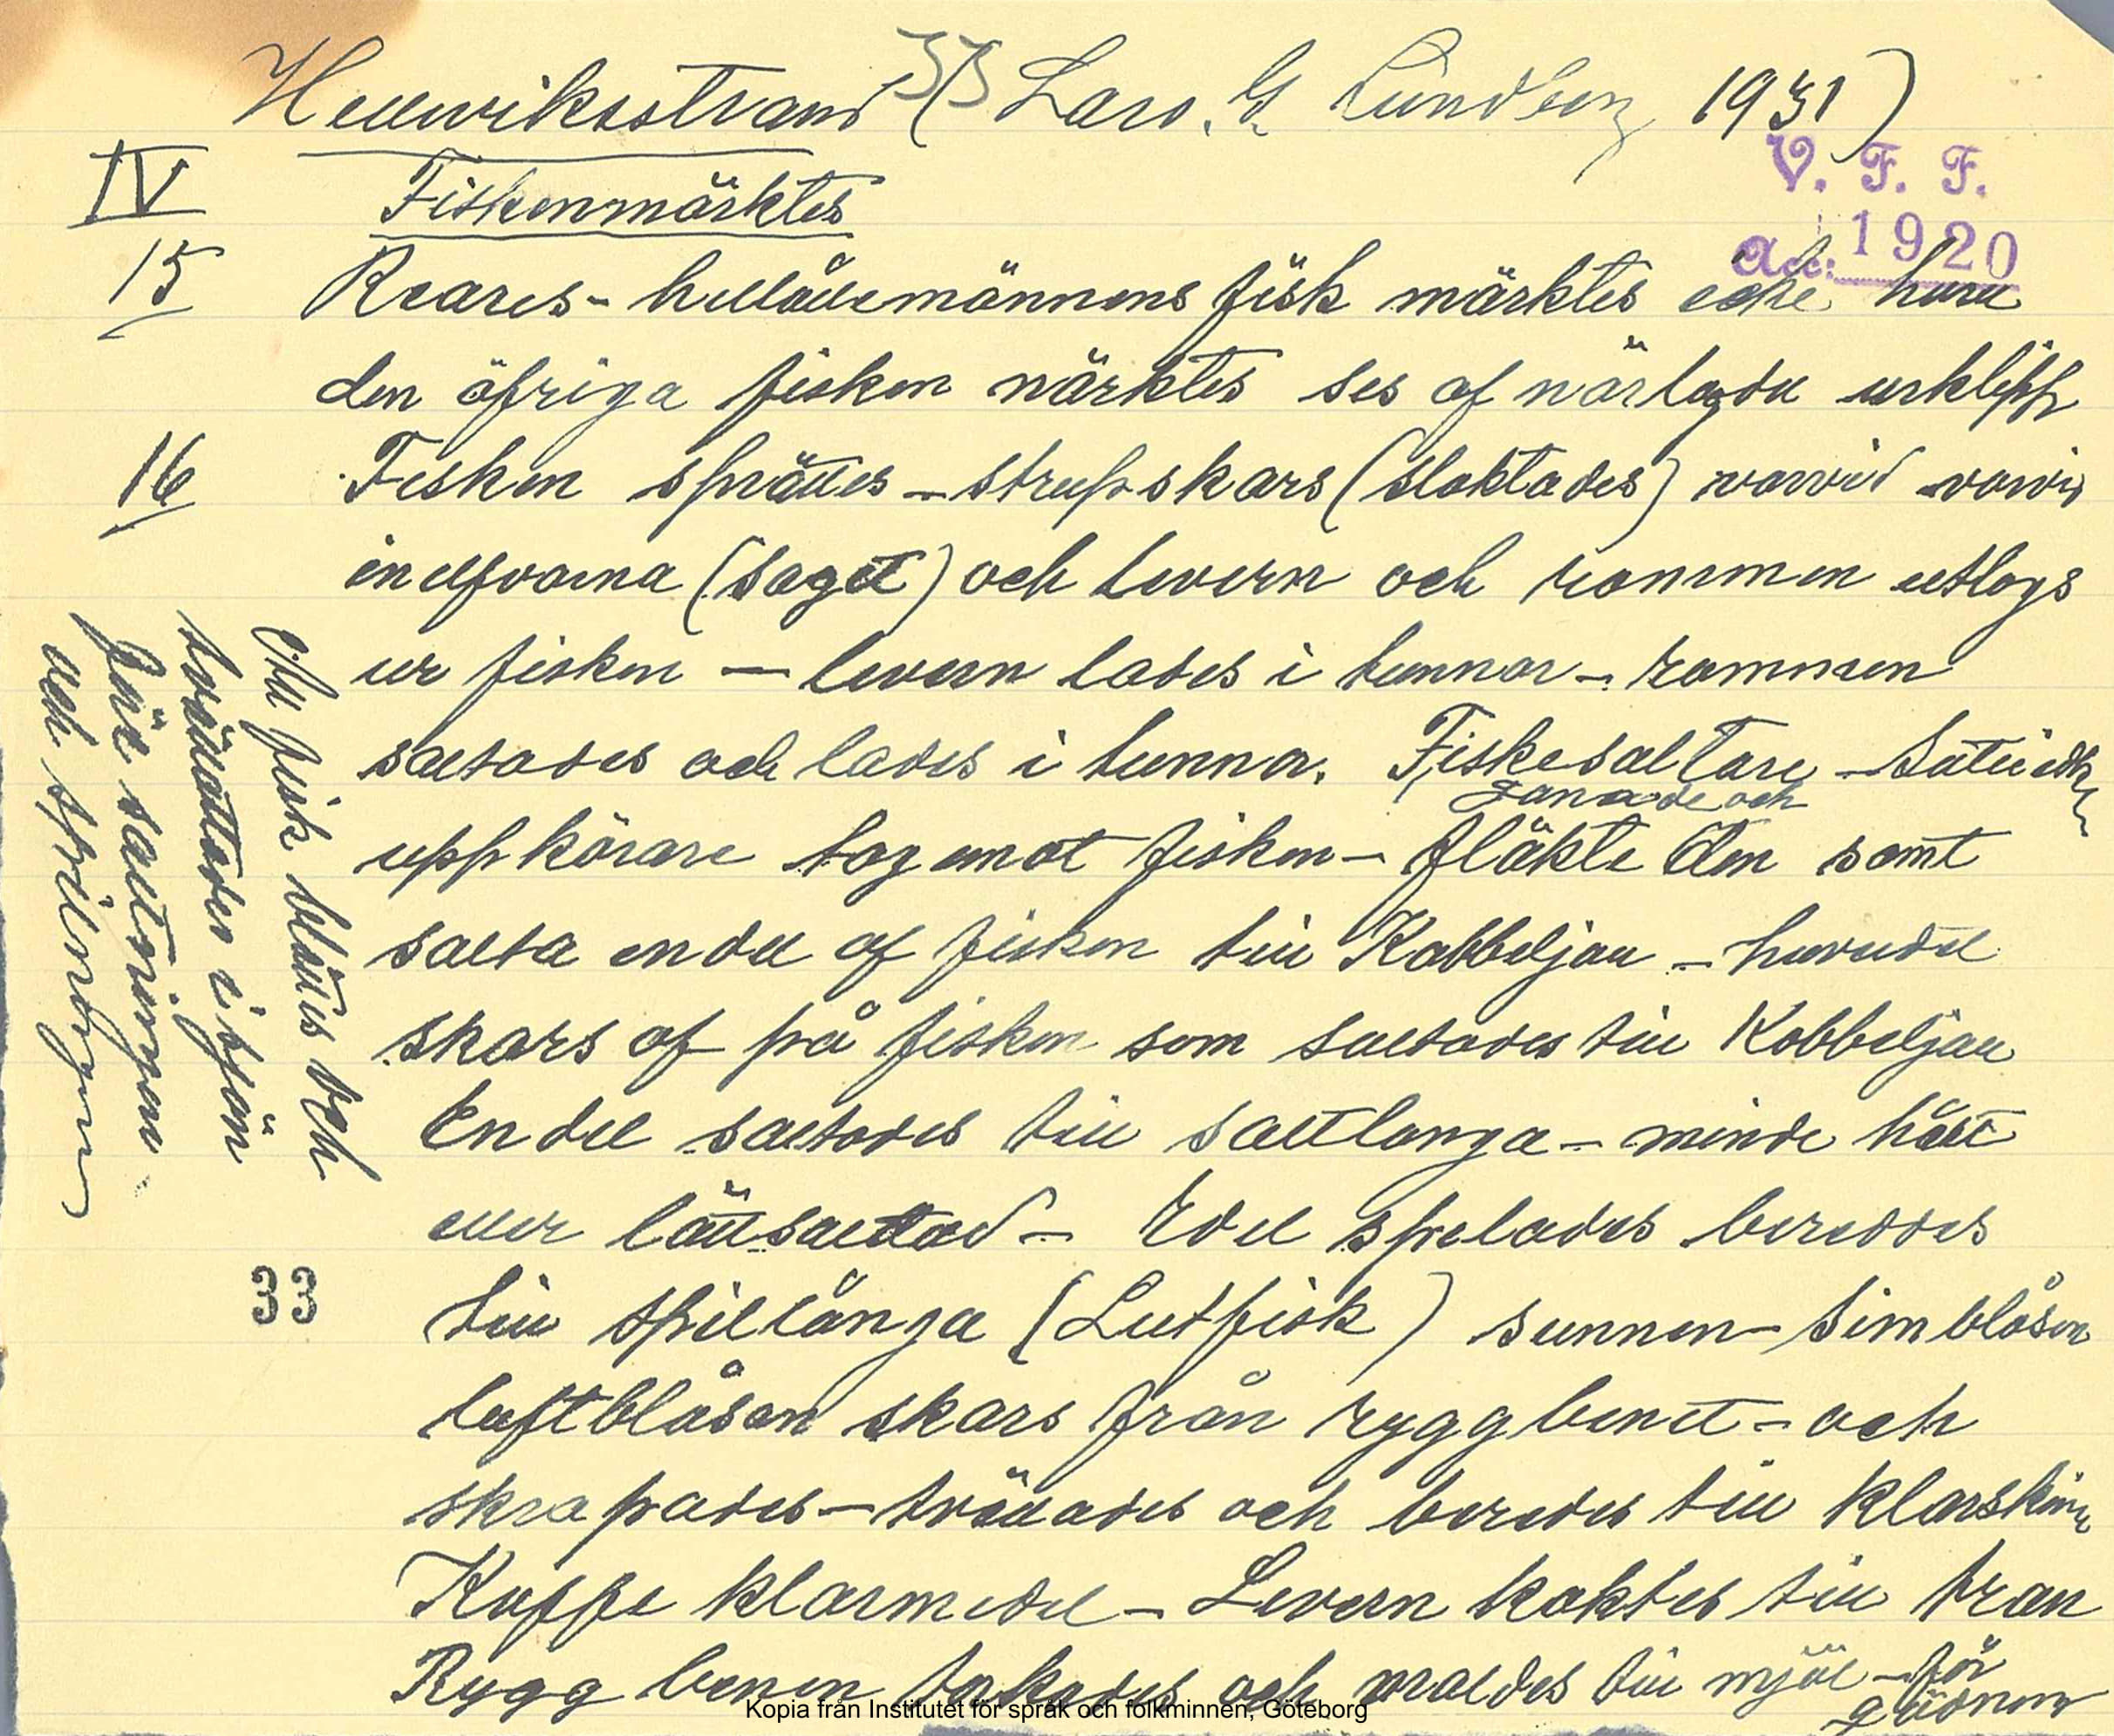 Hellwiksstrand (Lars. G Lundberg 1931)
33
V. F. F.
Acc: 1920
IV Fiskenmärktes
15 Reares - hellållemännens fisk märktes icke huru
den öfriga fisken märktes ses af närlagda urklipp
16 Fisken sprättes - strupskars (slaktades) varvid
inelfvorna (saget) och levern och rommen uttogs
ur fisken - levern lades i tunnor - rommen
saltades och lades i tunnor. Fiskesaltare
ganade och
uppkörare tog emot fisken - fläkte den samt
salta endel af fisken till Kabbeljau - huvudel
skars af på fisken som saltades till Kabbeljau
Endel saltades till saltlånga - mindre hårt
eller lättsaltad - Edel spelades bereddes
till spillånga (Lutfisk) sunnen - simblåsen
luftblåsan skars från ryggbenet - och
skrapades - tvättades och beredes till klarskinn
Kaffe klarmedel - Levern koktes till tran
Rygg benen torkades och maldes till mjöl - för
gädnin
Obs fisk blötes och
tvättades i sjön
före saltningen
och spilningen
33
Kopia från Institutet för språk och folkminnen, Göteborg